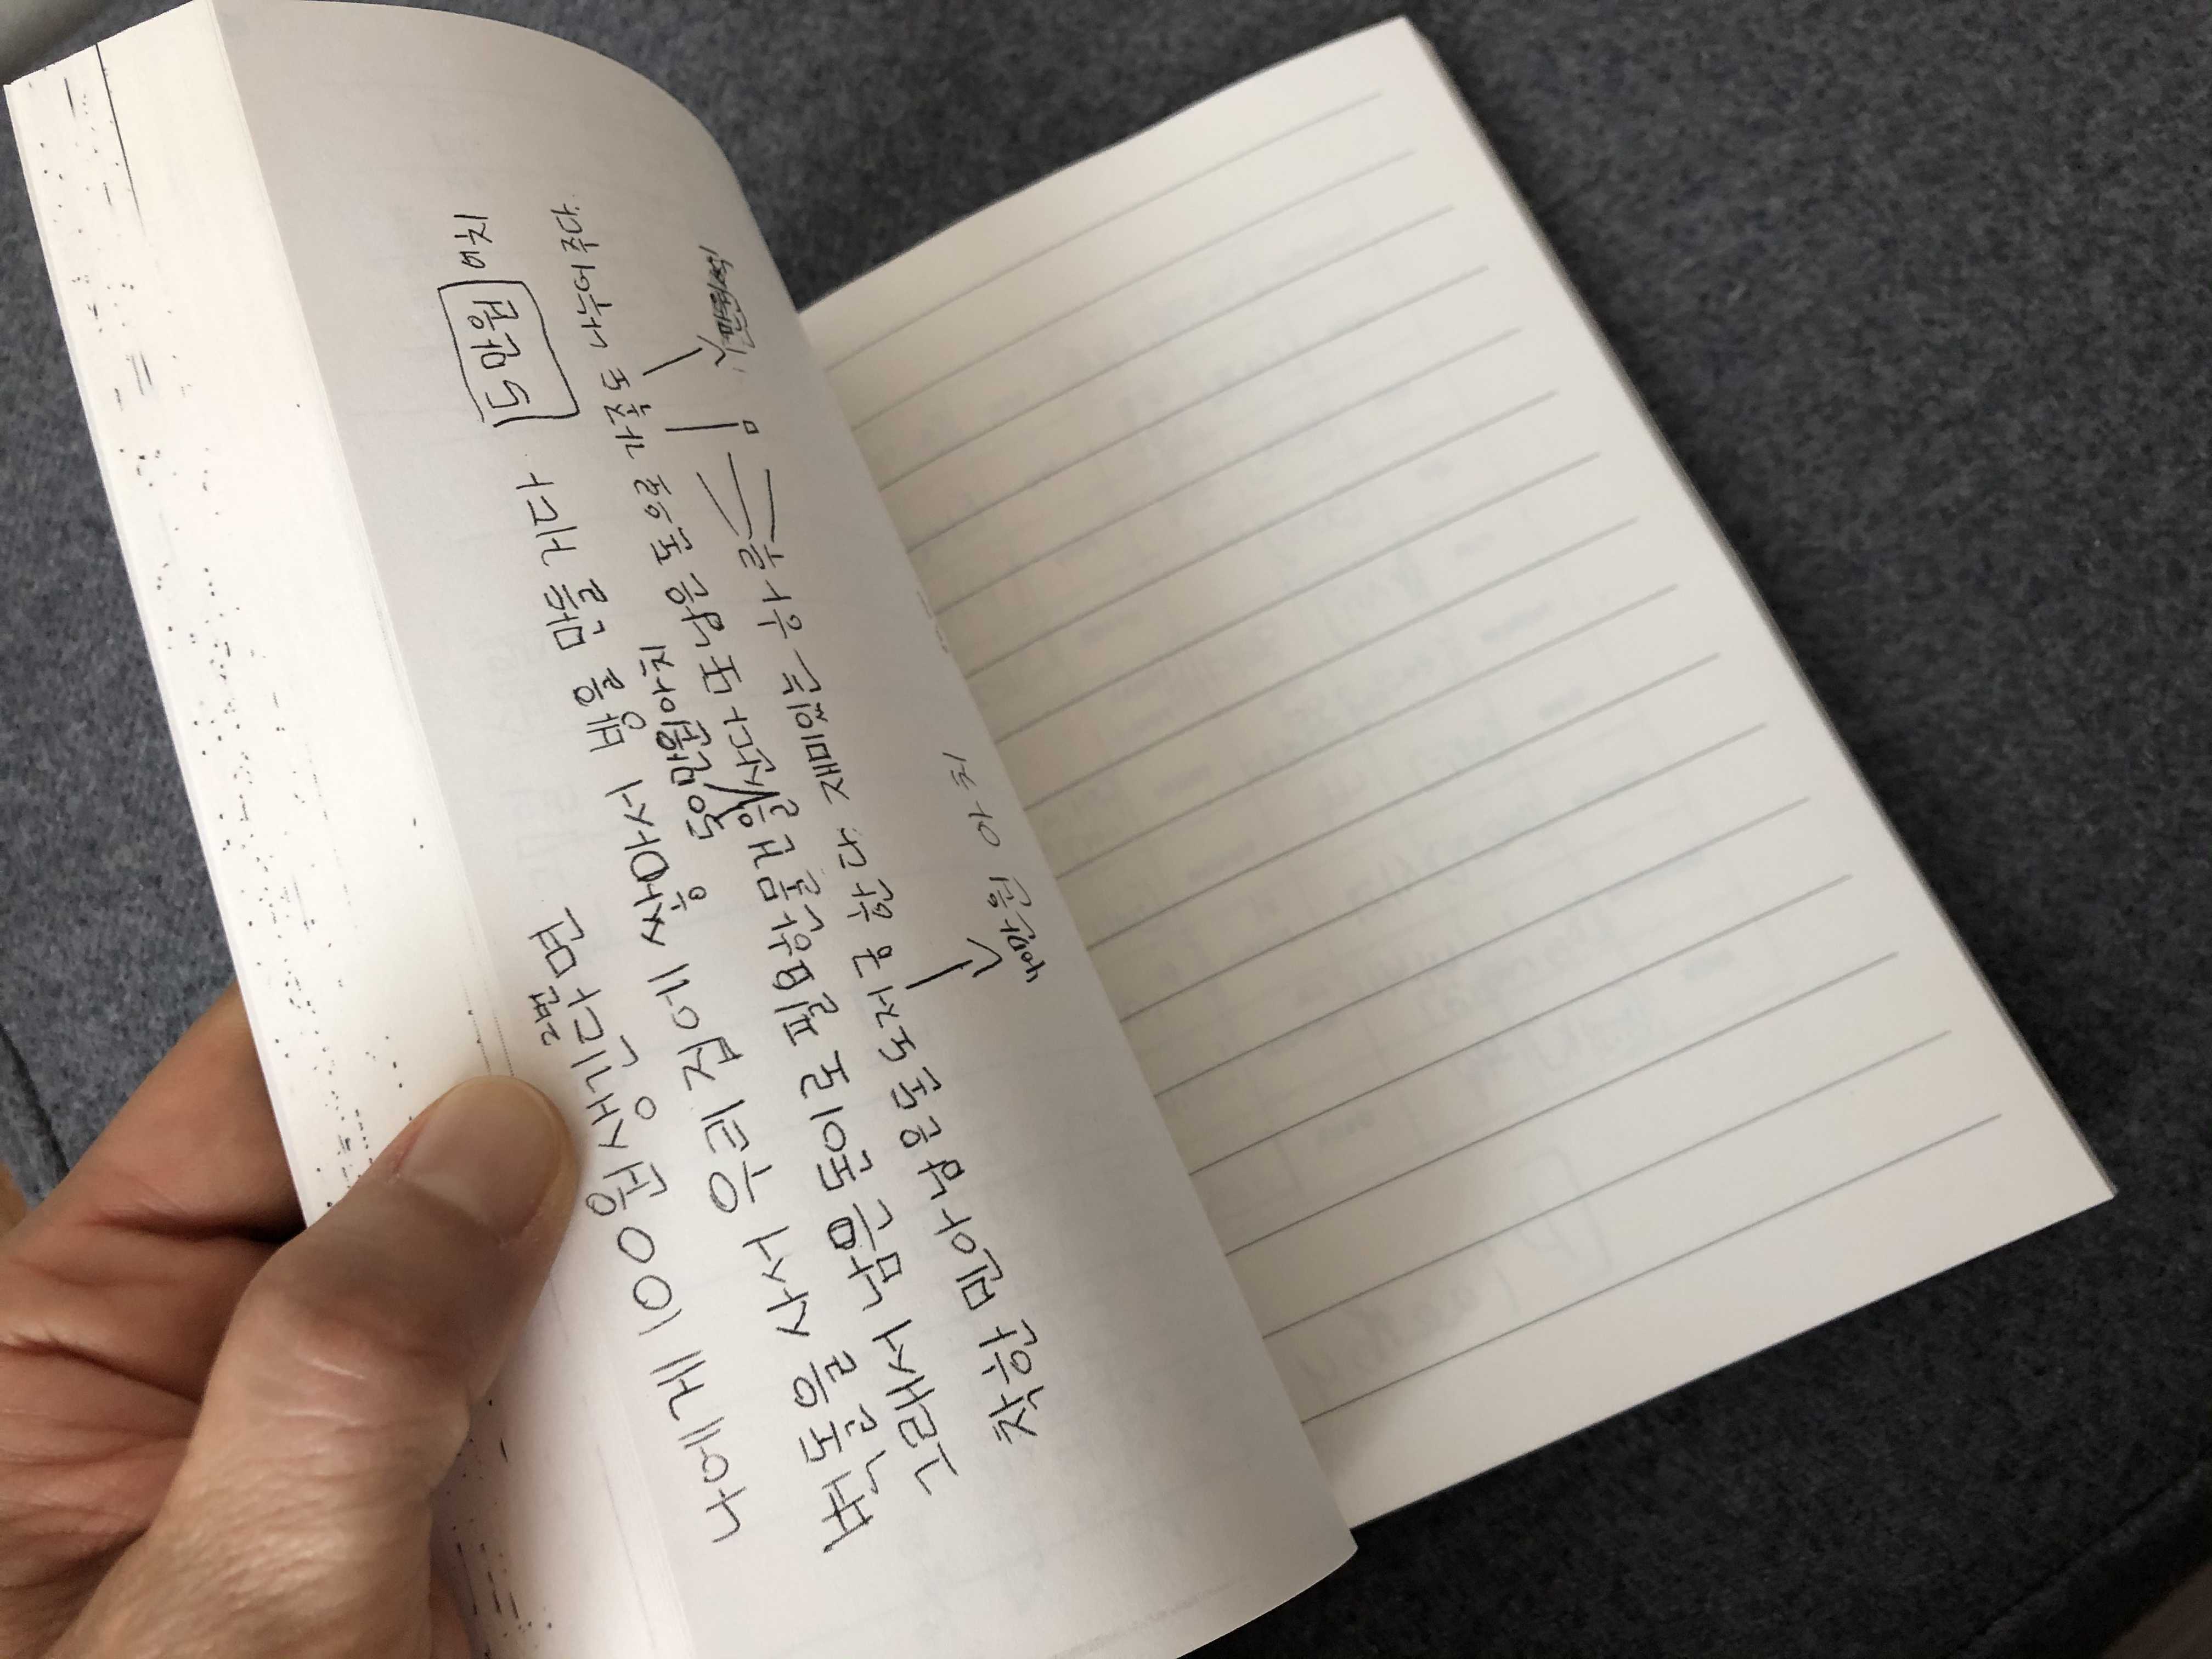 2번
5만원어치
나에게 100원생긴다면
벽돌을 사서 우리 집에 쌓아서 방을 만들거다
50만원어치
그래서 남은 돈이로 필요한물건을 산다 또 남은 돈으로 가족도 나누어주다.
착한 민아 남은돈 도저금 한다. 재미있는 하루
40만원 아치